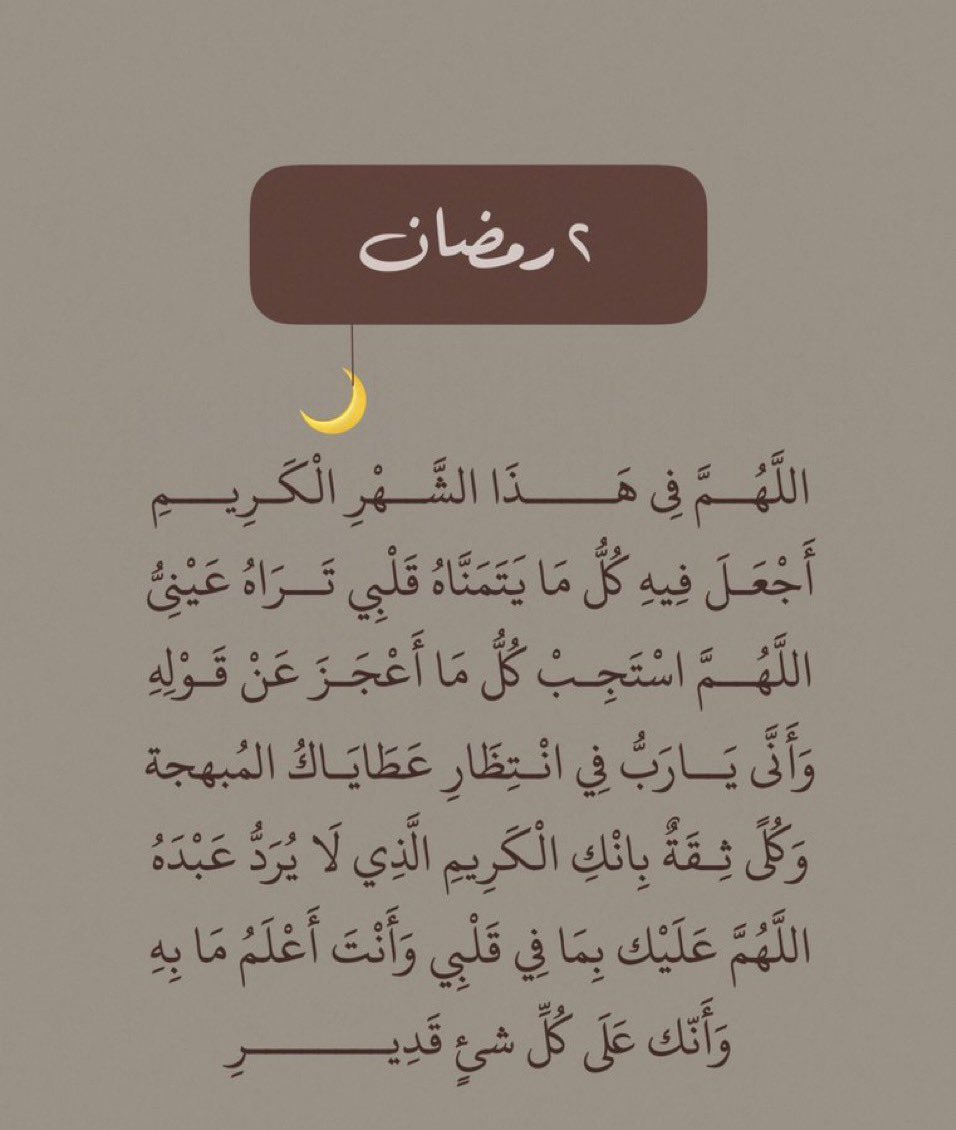 ٢ رمضان
اللَّهُمَّ فِى هَذَا الشَّهْرِ الْكَرِيمِ
أَجْعَلَ فِيهِ كُلُّ مَا يَتَمَنَّاهُ قَلْبِي تَرَاهُ عَيْنِىُّ
اللَّهُمَّ اسْتَجِبْ كُلُّ مَا أَعْجَزَ عَنْ قَوْلِهِ
وَأَنَّى يَارَبُّ فِي انْتِظَارِ عَطَايَاكُ المُبهجة
وَكُلًى ثِقَةٌ بِانْكِ الْكَرِيمِ الَّذِي لَا يُرَدُّ عَبْدَهُ
اللَّهُمَّ عَلَيْك بِمَا فِي قَلْبِي وَأَنْتَ أَعْلَمُ مَا بِهِ
وَأَنّك عَلَى كُلِّ شئٍ قَدِيرِ